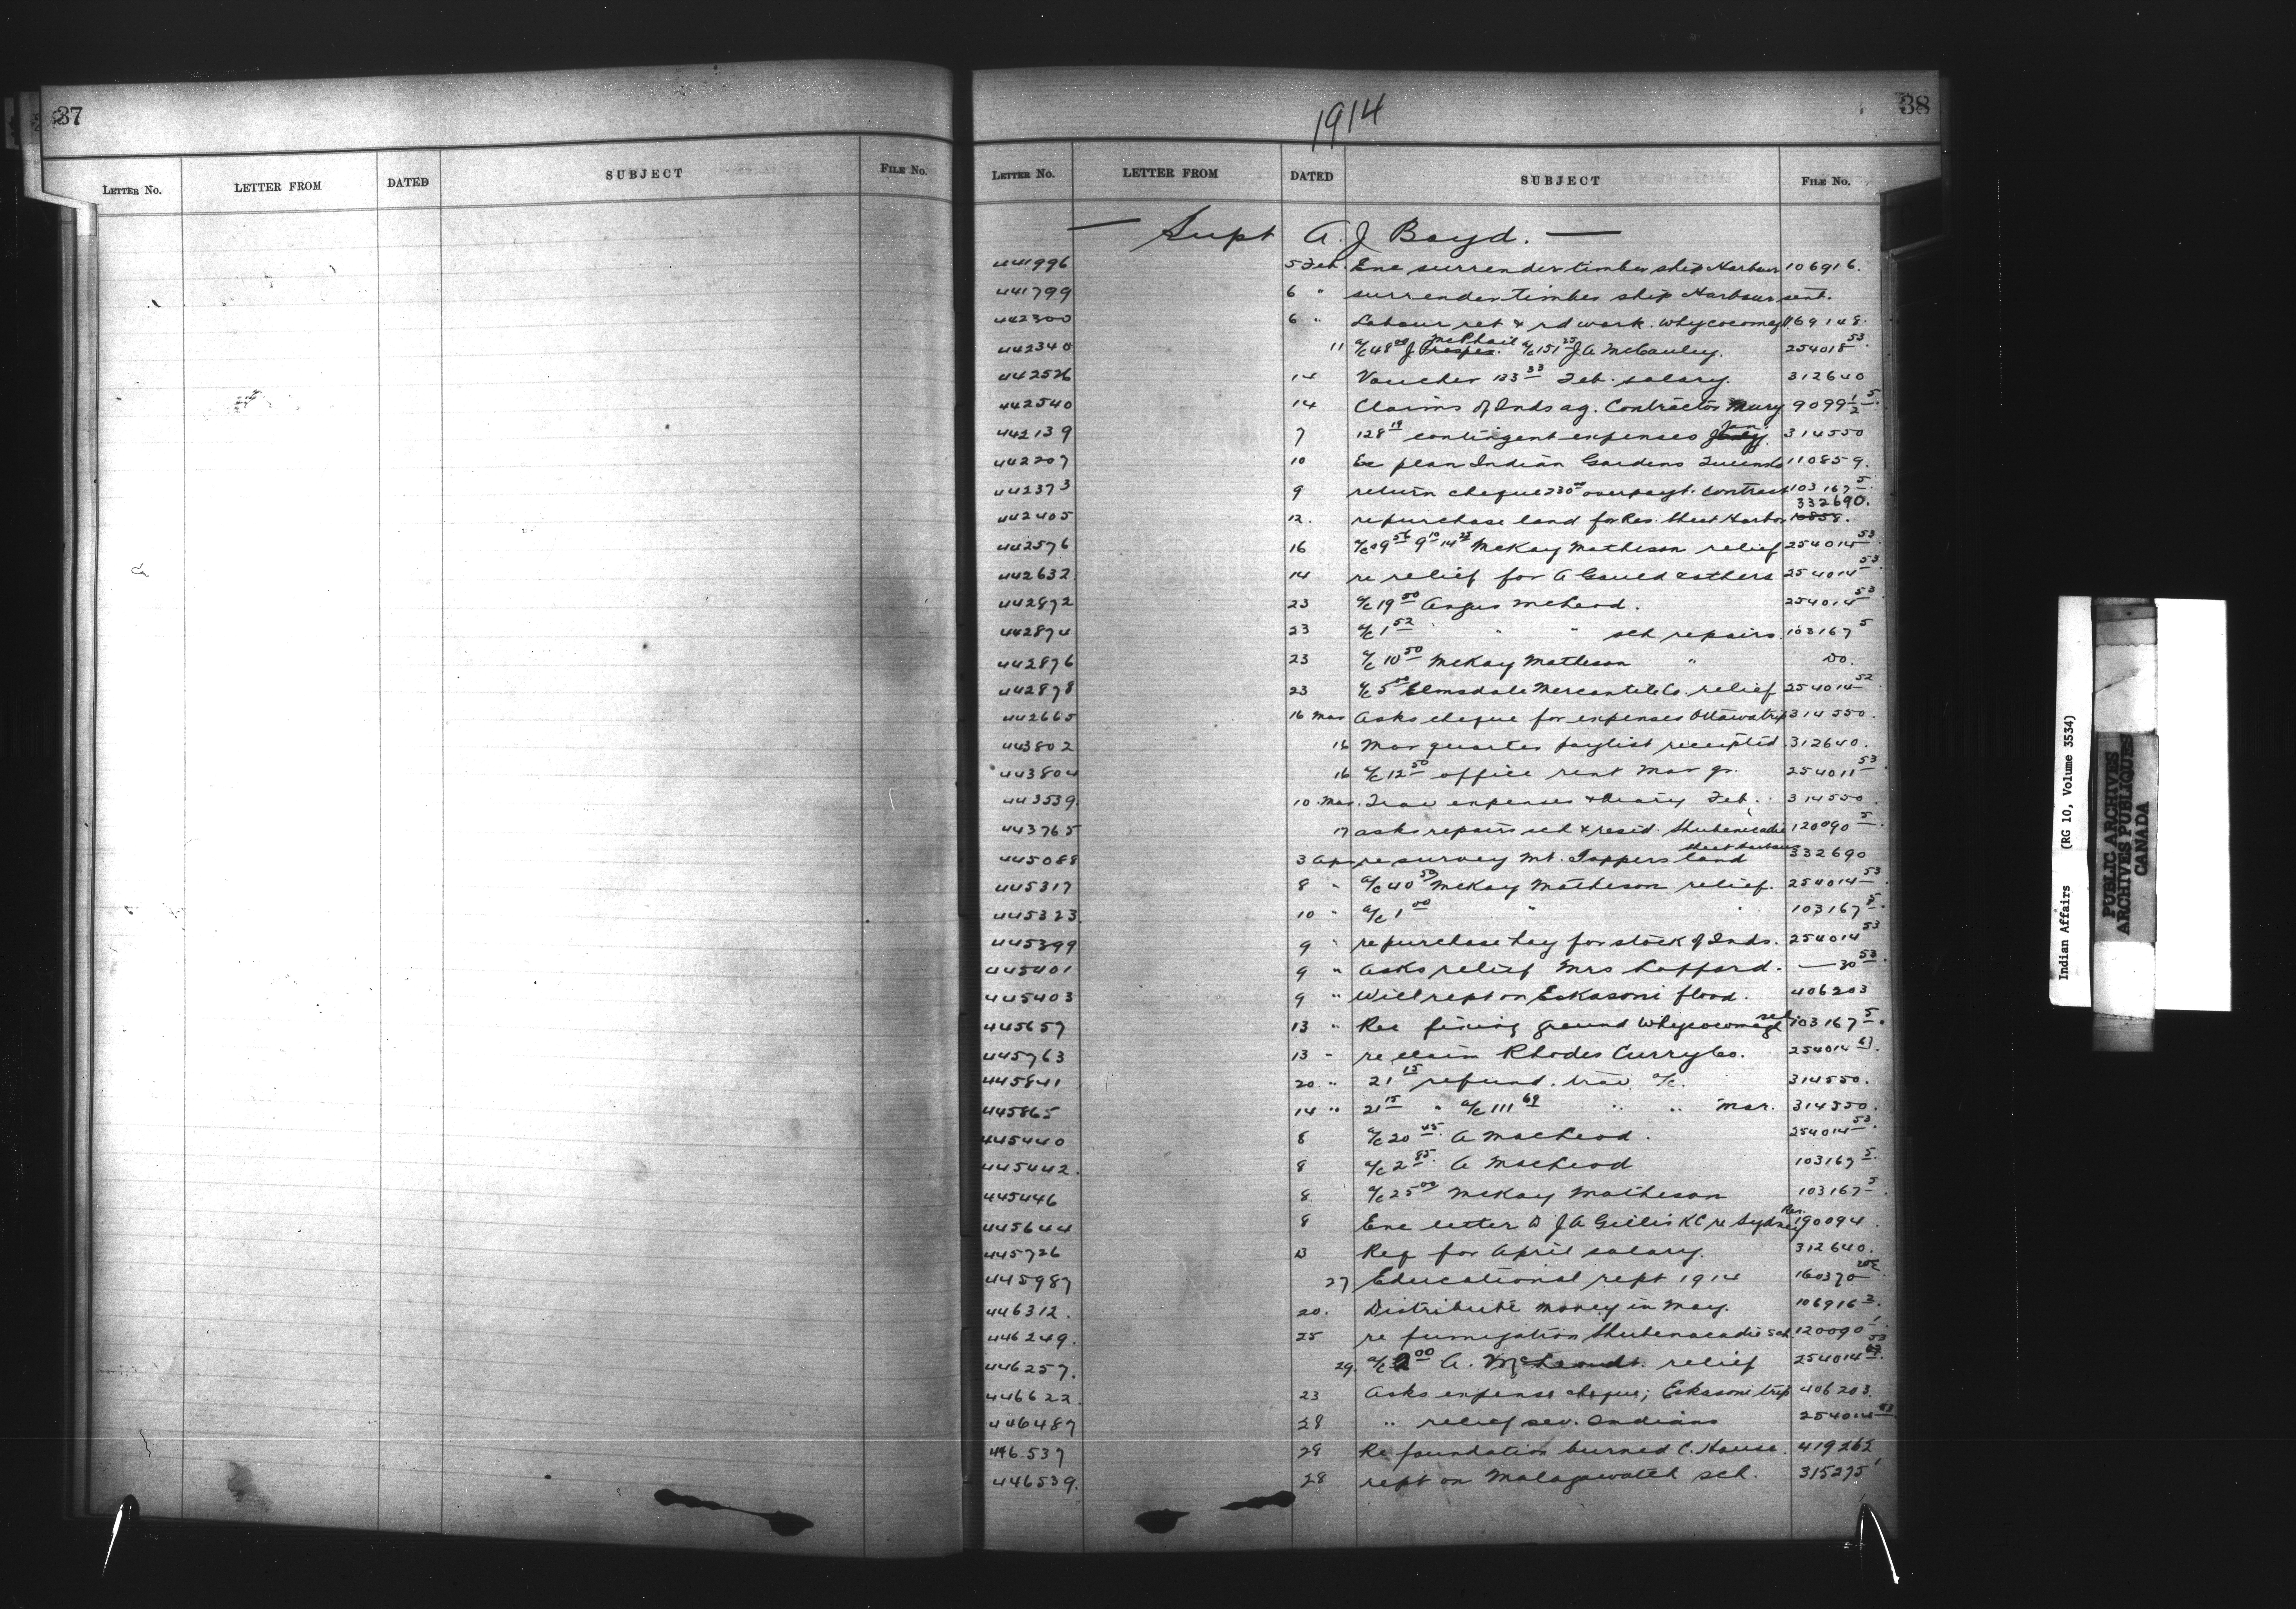 37
LETTER NO. LETTER FROM DATED SUBJECT FILE NO.
1914
38
LETTER NO. LETTER FROM DATED SUBJECT FILE NO.
— Supt A. J Boyd. —
441996 5 Feb. Enc surrender timber ship Harbour 106916.
441799 6 " surrender timber ship Harbour sent.
442300 6 " Labour ret & rd work. Whycocomagh 69148.
442340 11 a/c 48 00 J McPhail a/c 151 25 J A McCauley. 254018 53
442526 14 Voucher 133 33 Feb. salary. 312640
442540 14 Claims of Inds ag. Contractor Mury 9099 1/2 5.
442139 7 128 19 contingent expenses Jan 314550
442207 10 Re plan Indian Gardens Queens Co 110859.
442373 9 return cheque 230 00 overpayt. contract 103167 5.
442405 12. re purchase land for Res. Sheet Harbor 332690.
442576 16 McKay Matheson relief 254014 53
442632. 14 re relief for A Gould & others 254014 53.
442872 23 a/c 19 50 Angus McLeod. 254014 53
442874 23 a/c 1 52 " " sch repairs 103167 5
442876 23 a/c 10 50 McKay Matheson " Do.
442878 23 a/c 5 00 Elmsdale Mercantile Co. relief 254014 52
442665 16 Mar Asks cheque for expenses Ottawa trip 314550.
443802 16 Mar quarter paylist receipted. 312640.
443804 16 a/c 12 50 office rent Mar qr. 254011 53
443539. 10 Mar. Trav expenses & diary Feb. 314550.
443765 17 asks repairs sch & resid. Shubenacadie 120090 5
445088 3 Apr re survey Mt. Toppers land Sheet Harbour 332690
445317 8 " a/c 40 50 McKay Matheson relief. 254014 53
445323. 10 " a/c 1 00 " " 103167 5.
445399 9 " re purchase hay for stock of Inds. 254014 53
445401 9 " Asks relief Mrs Lafford. — 30 53.
445403 9 " Will rept on Eskasoni flood. 406203
445657 13 " Rec fixing ground Whycocomagh sch 103167 5.
445763 13 " re claim Rhodes Curry Co. 254014 63.
445841 20 " 21 15 refund. trav. a/c. 314550.
445865 14 " 21 15 " a/c 111 69 " " Mar. 314550.
445440 8 a/c 20 45. A MacLeod. 254014 53.
445442. 8 a/c 2 85. A MacLeod 103167 5.
445446 8 a/c 25 00 McKay Matheson 103167 5.
445644 8 Enc letter D J A Gillis KC re Sydney Res. 190094.
445726 13 Req for April salary. 312640.
445987 27 Educational rept 1914 160370
446312. 20. Distribute money in May. 106916 3.
446249. 25 re fumigation Shubenacadie sch. 120090 1.
446257. 29. a/c 2 00 A. relief 254014 53
446622. 23 Asks expense cheque; Eskasoni trip 406203.
446487 28 " relief sev. Indians 254014 53
446537 28 Re foundation burned C. House. 419262
446539. 28 rept on Malagawatch sch. 315275 1
Indian Affairs (RG 10, Volume 3534)
PUBLIC ARCHIVES
ARCHIVES PUBLIQUES
CANADA